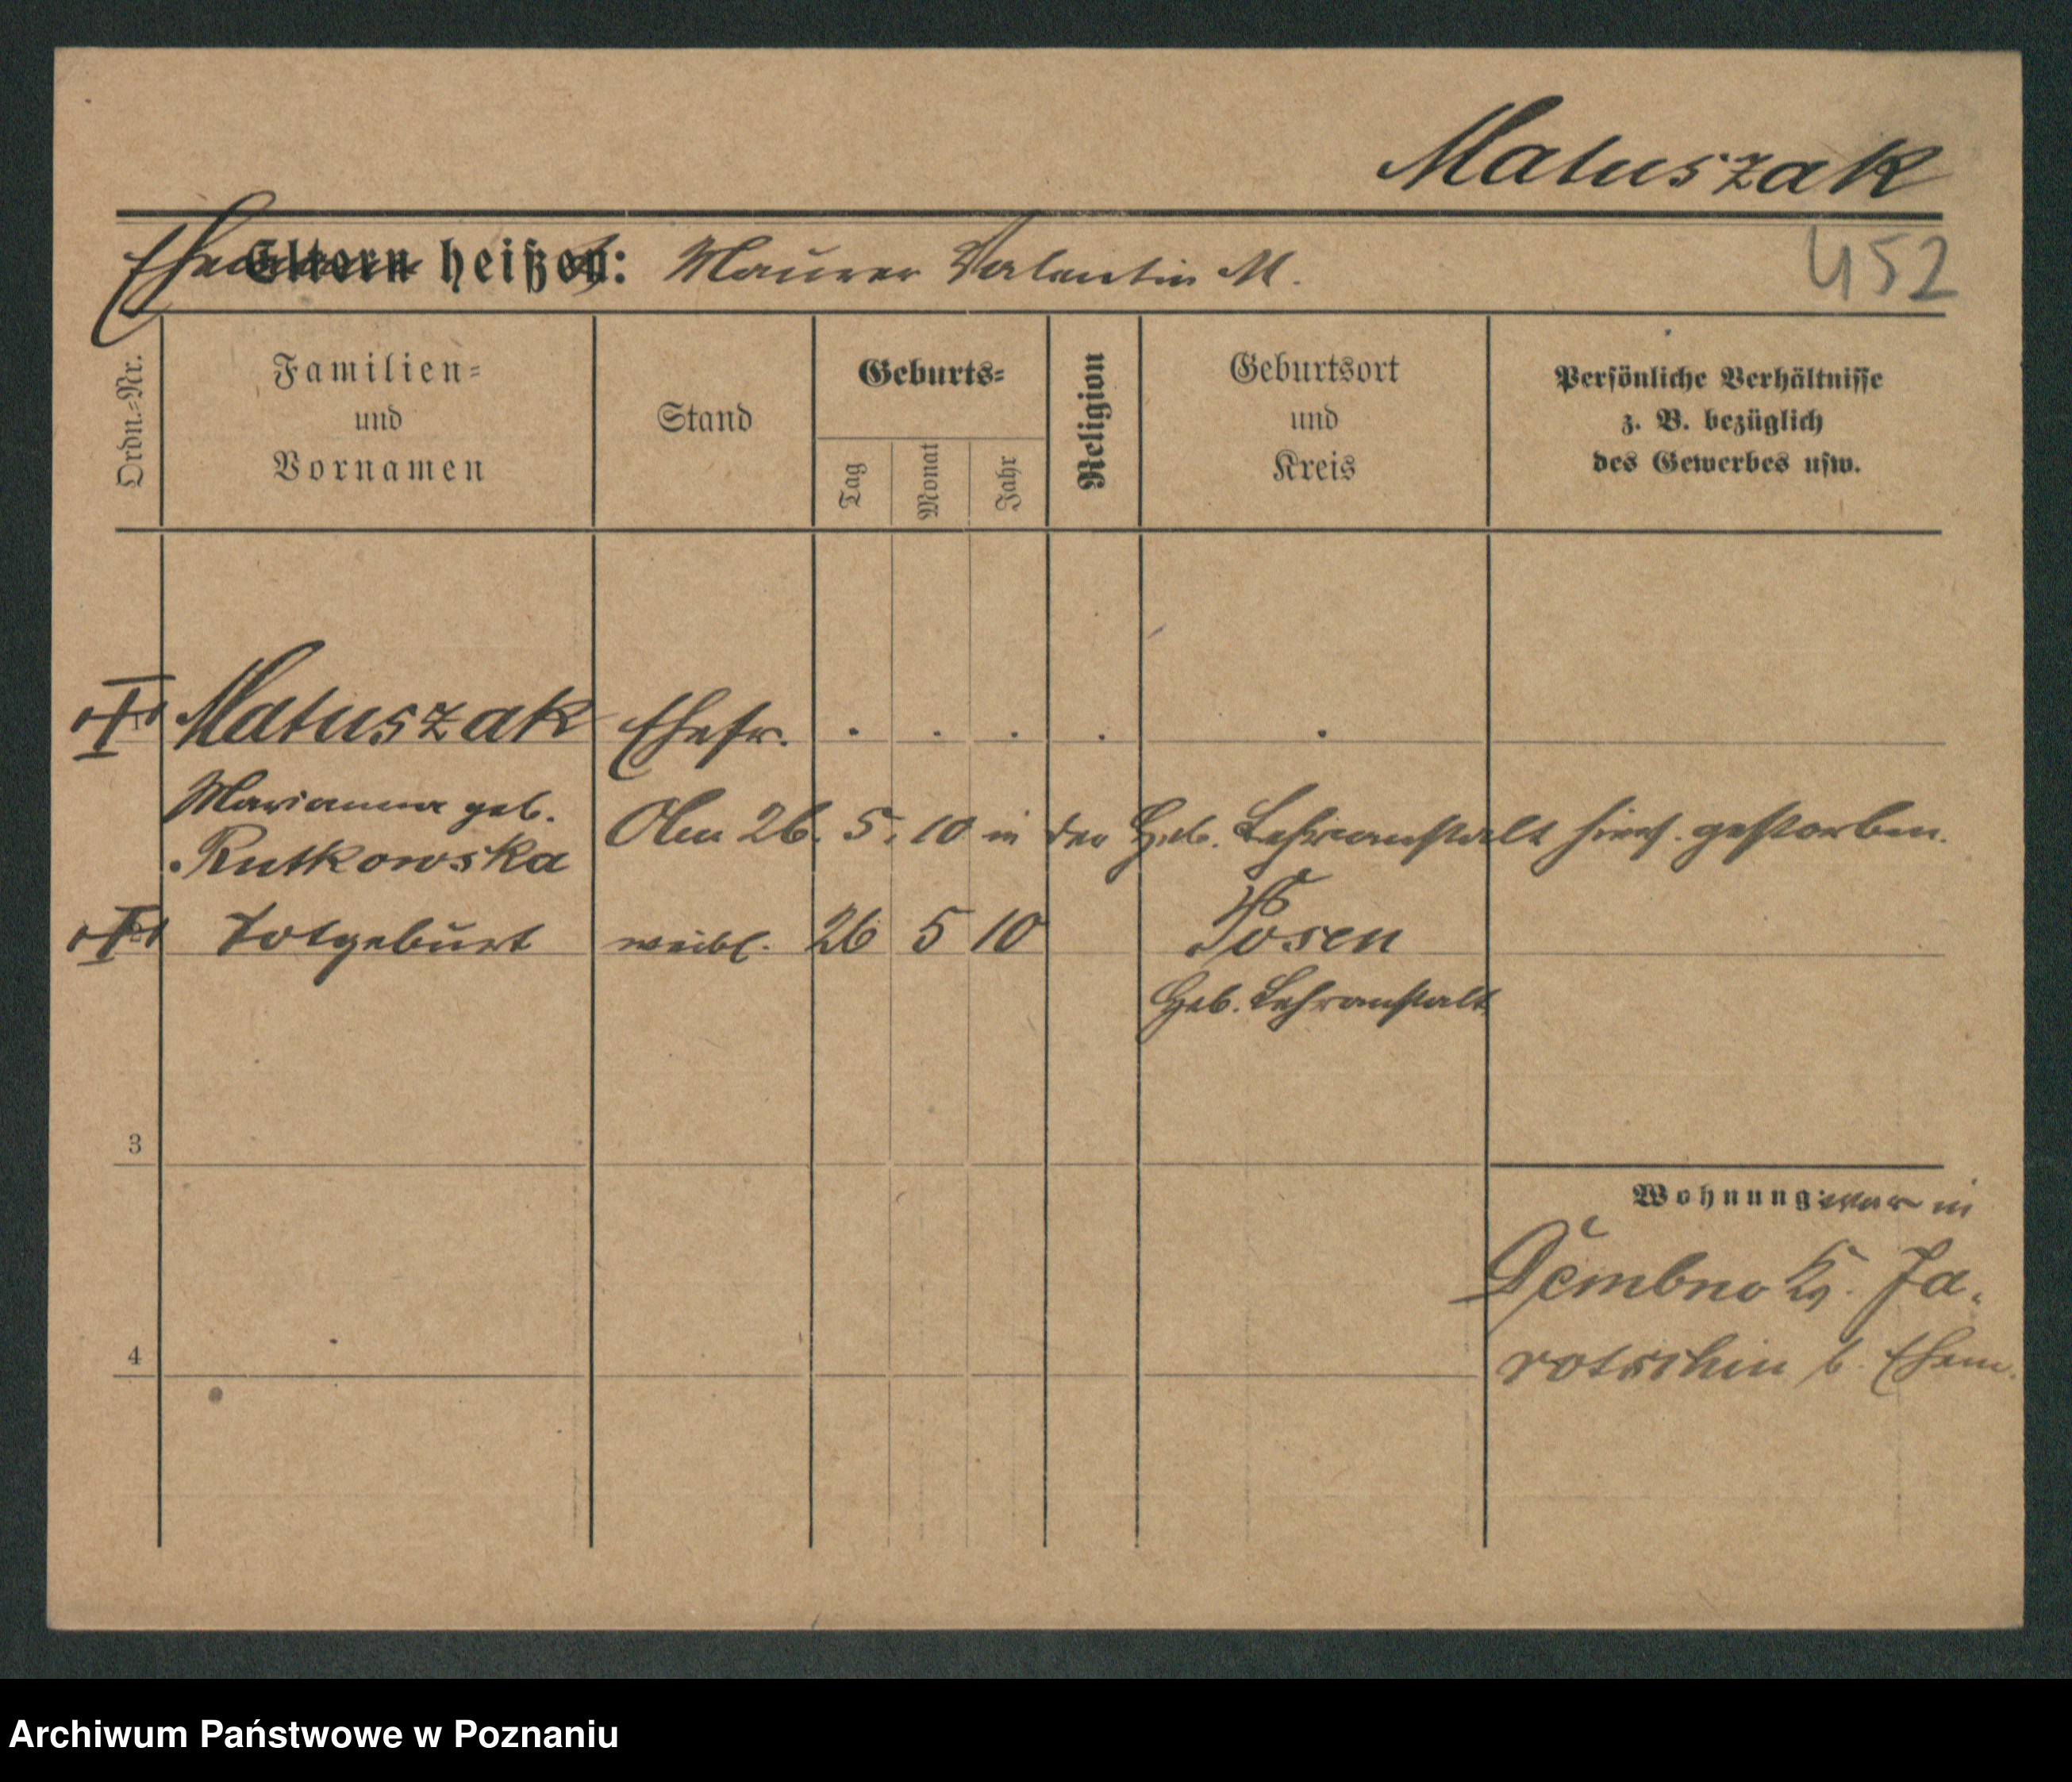 Matuszak
Ehemann Eltern heißt heißen: Maurer Valentin M.
452
Ordn.-Nr.
Familien-
und
Vornamen
Stand
Geburts-
Tag
Monat
Jahr
Religion
Geburtsort
und
Kreis
Persönliche Verhältnisse
z. B. bezüglich
des Gewerbes usw.
Matuszak Ehefr. . . . . .
Marianna geb.
Rutkowska
Am 26. 5. 10 in der Heb. Lehranstalt hies. gestorben.
Totgeburt weibl. 26 5 10 Posen
Heb. Lehranstalt
3
Wohnung: war in
Dembno Kr. Ja-
rotschin b. Ehem.
4
Archiwum Państwowe w Poznaniu